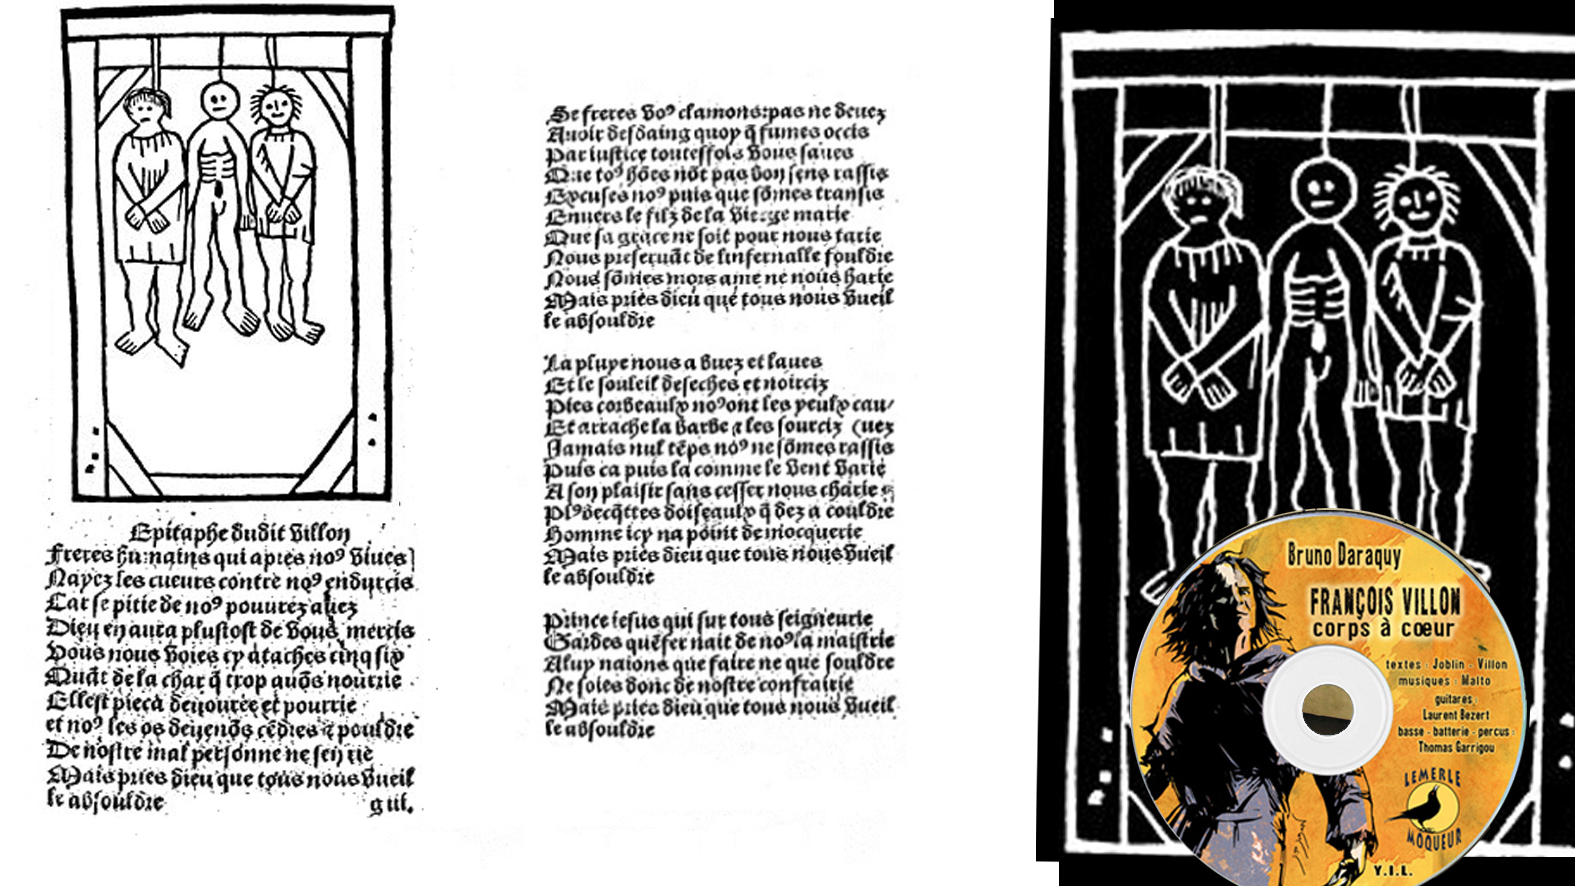 Epitaphe dudit Villon
Freres humains qui apres noꝰ viues
Nayez les cueurs contre noꝰ endurcis
Car se pitie de noꝰ pouurez auez
Dieu en aura plustost de vous mercis
Vous nous voies cy ataches cinq six
Quāt de la char q̄ trop auōs nourrie
Ellest pieca deuouree et pourrie
et noꝰ les os deuenōs cēdres ⁊ pouldre
De nostre mal personne ne sen rie
Mais pries dieu que tous nous vueil
le absouldre
g iii.
Se freres voꝰ clamons: pas ne deuez
Auoir desdaing quoy q̄ fumes occis
Par iustice touteffois vous saues
Que toꝰ hōes nōt pas bon sens rassis
Excuses noꝰ puis que sōmes transis
Enuers le filz de la vierge marie
Que sa grace ne soit pour nous tarie
Nous preseruāt de linfernalle fouldre
Nous sōmes mors ame ne nous harie
Mais pries dieu que tous nous vueil
le absouldre
La pluye nous a buez et laues
Et le souleil deseches et noircis
Pies corbeaulx noꝰ ont les yeulx cau/
Et arrache la barbe ⁊ les sourciz (uez
Jamais nul tēps noꝰ ne sōmes rassis
Puis ca puis la comme le vent varie
A son plaisir sans cesser nous charie
Plꝰ becq̄ttes doiseaulx q̄ dez a couldre
Homme icy na point de mocquerie
Mais pries dieu que tous nous vueil
le absouldre
Prince iesus qui sur tous seigneurie
Gardes quēfer nait de noꝰ la maistrie
A luy naions que faire ne que souldre
Ne soies donc de nostre confrairie
Mais pries dieu que tous nous vueil
le absouldre
Bruno Daraquy
FRANÇOIS VILLON
corps à cœur
textes : Joblin - Villon
musiques : Malto
guitares :
Laurent Bezert
basse - batterie - percus :
Thomas Garrigou
LEMERLE
MOQUEUR
Y.I.L.